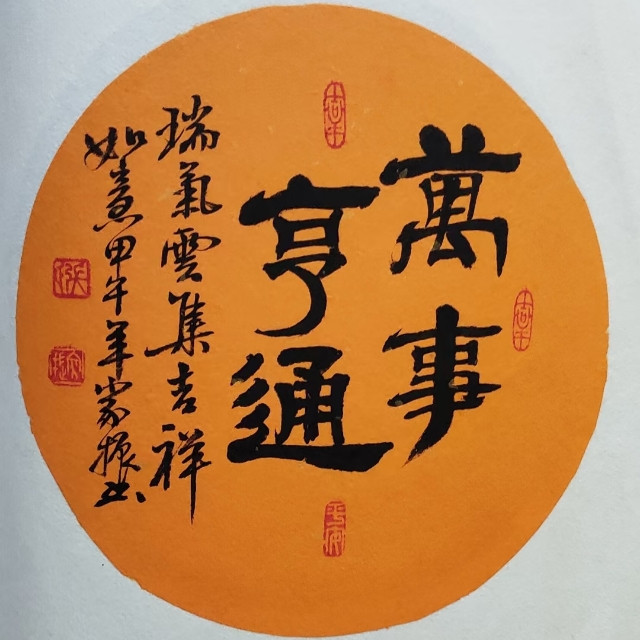 萬事
亨通
瑞氣雲集吉祥
如意甲午年家振书
平安